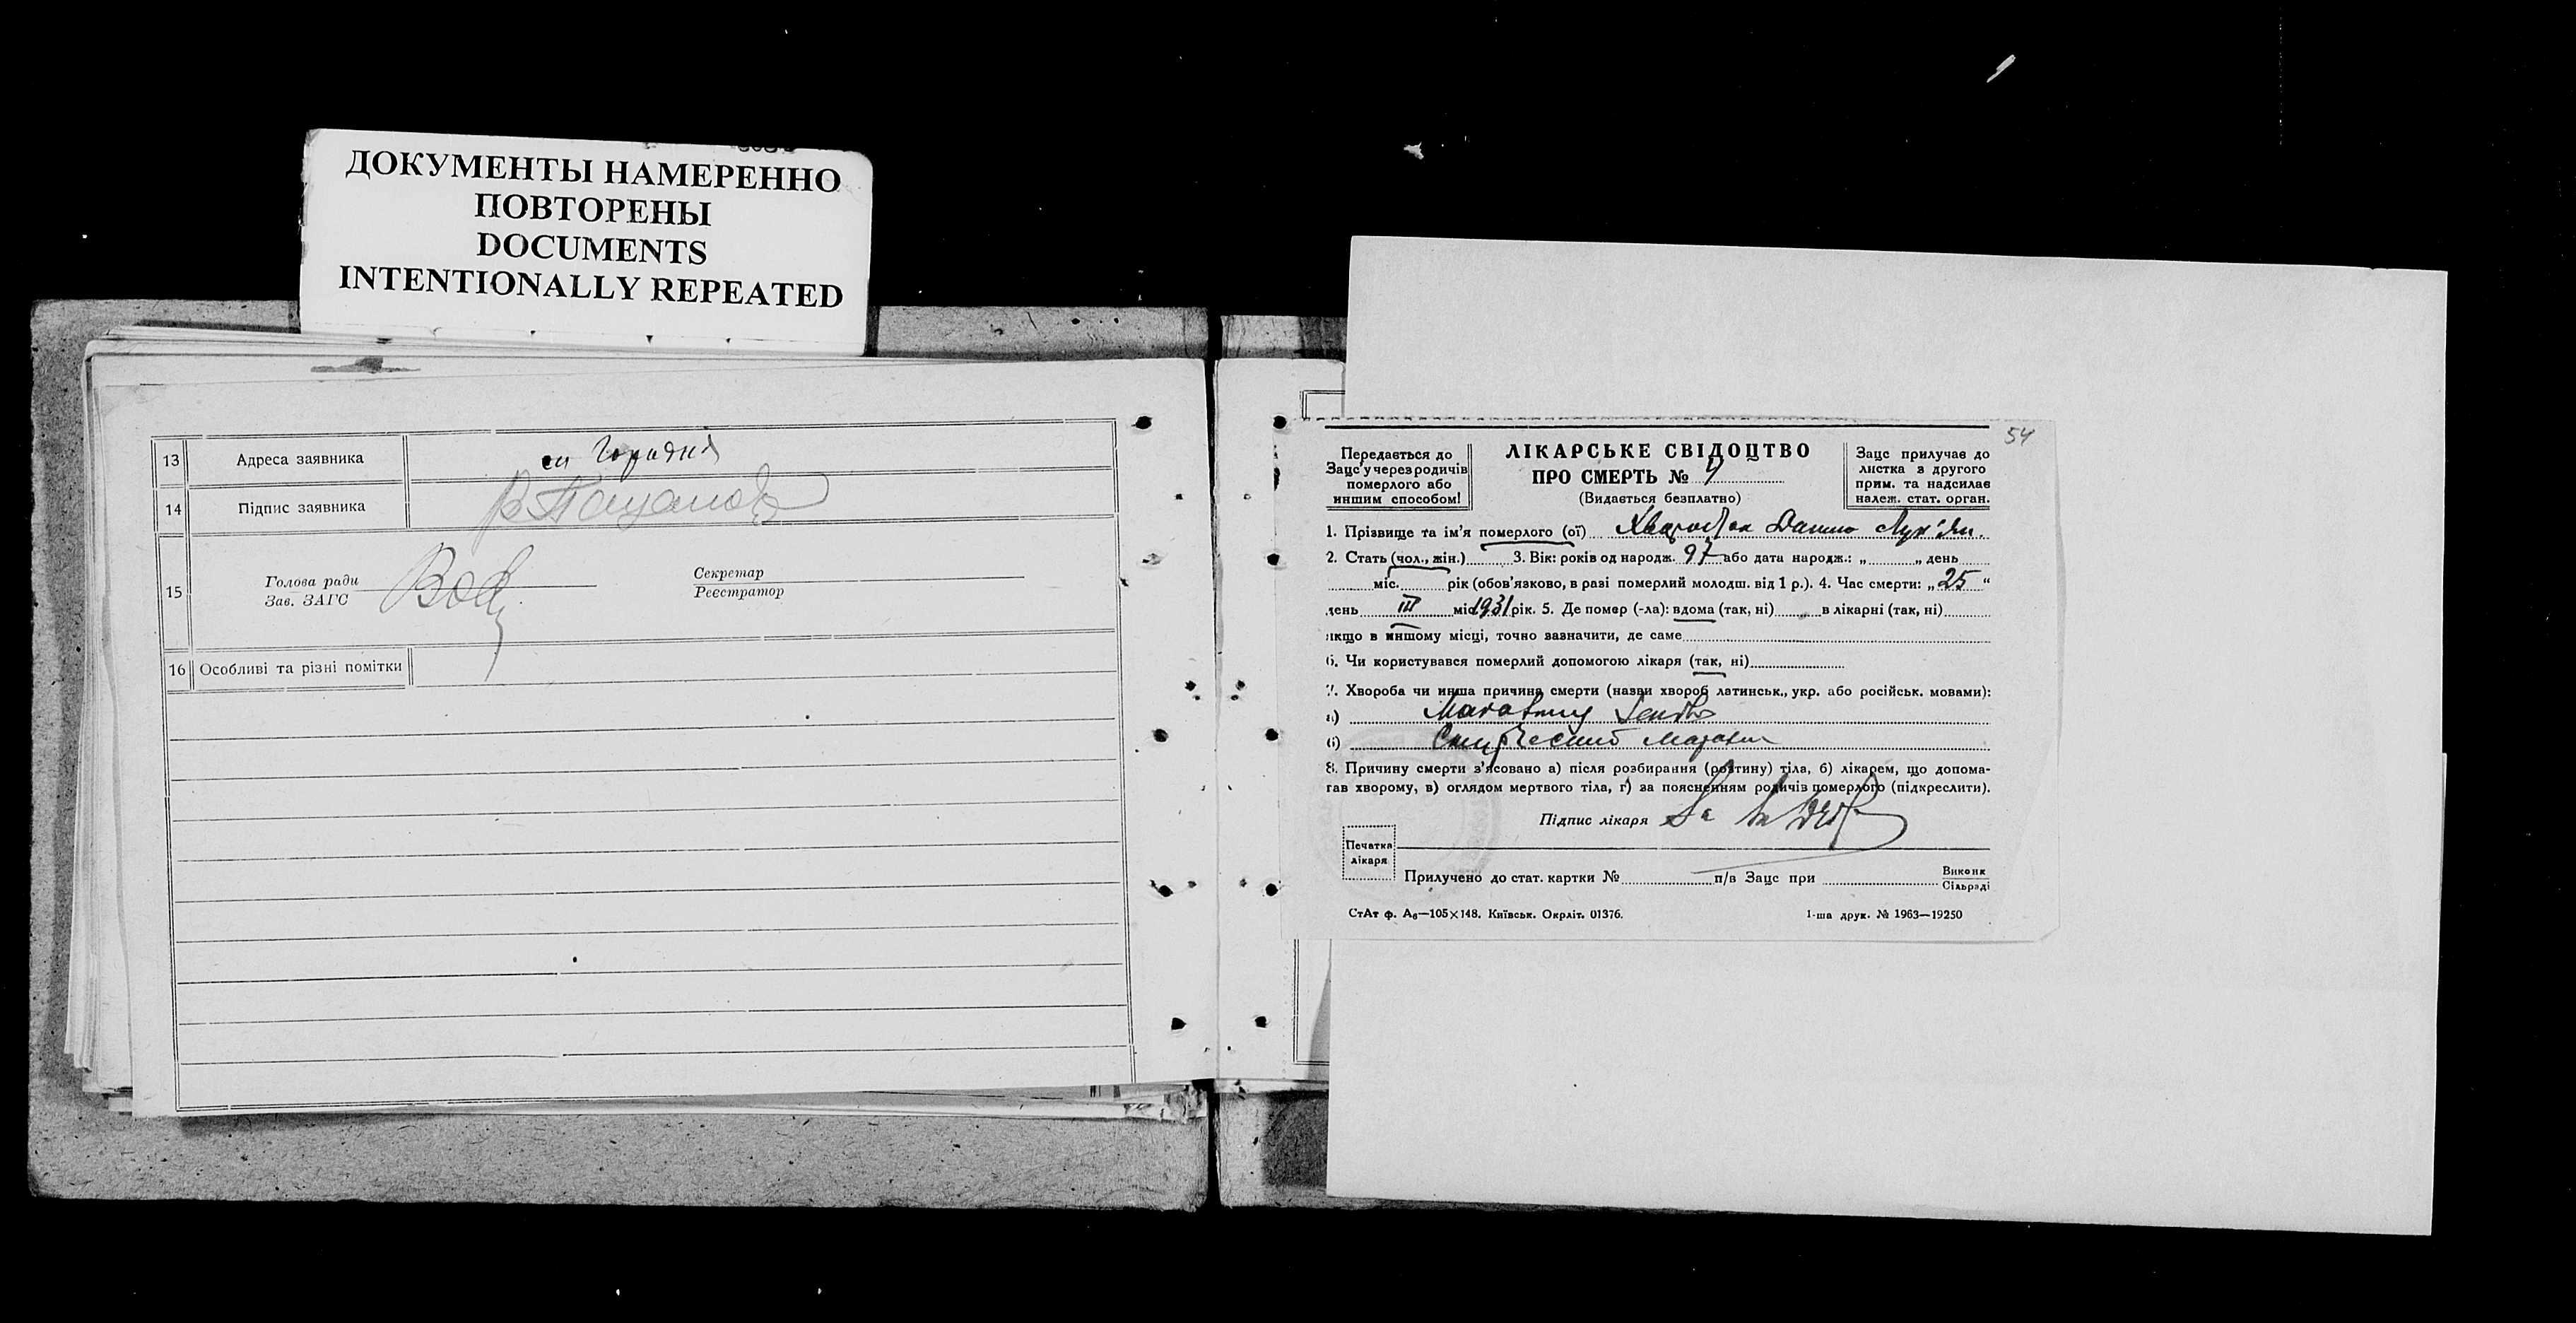 ДОКУМЕНТЫ НАМЕРЕННО
ПОВТОРЕНЫ
DOCUMENTS
INTENTIONALLY REPEATED
13 Адреса заявника
14 Підпис заявника
15 Голова ради
Зав. ЗАГС
Секретар
Реєстратор
16 Особливі та різні помітки
54
Передається до
Зацс'у через родичів
померлого або
иншим способом!
ЛІКАРСЬКЕ СВІДОЦТВО
ПРО СМЕРТЬ № 4
(Видається безплатно)
Зацс прилучає до
листка з другого
прим. та надсилає
належ. стат. орган.
1. Прізвище та ім'я померлого (ої) Данило Лук'ян.
2. Стать (чол., жін.) 3. Вік: років од народж. 97 або дата народж.: „ „ день
міс. рік (обов'язково, в разі померлий молодш. від 1 р.). 4. Час смерти: „25“
день III міс. 1931 рік. 5. Де помер (-ла): вдома (так, ні) в лікарні (так, ні)
якщо в иншому місці, точно зазначити, де саме
6. Чи користувався померлий допомогою лікаря (так, ні)
7. Хвороба чи инша причина смерти (назви хвороб латинськ., укр. або російськ. мовами):
а)
б)
8. Причину смерти з'ясовано а) після розбирання (розтину) тіла, б) лікарем, що допома-
гав хворому, в) оглядом мертвого тіла, г) за поясненням родичів померлого (підкреслити).
Підпис лікаря
Печатка
лікаря
Прилучено до стат. картки № п/в Зацс при Виконк
Сільраді
СтАт ф. А₆—105×148. Київськ. Окрліт. 01376. 1-ша друк. № 1963—19250